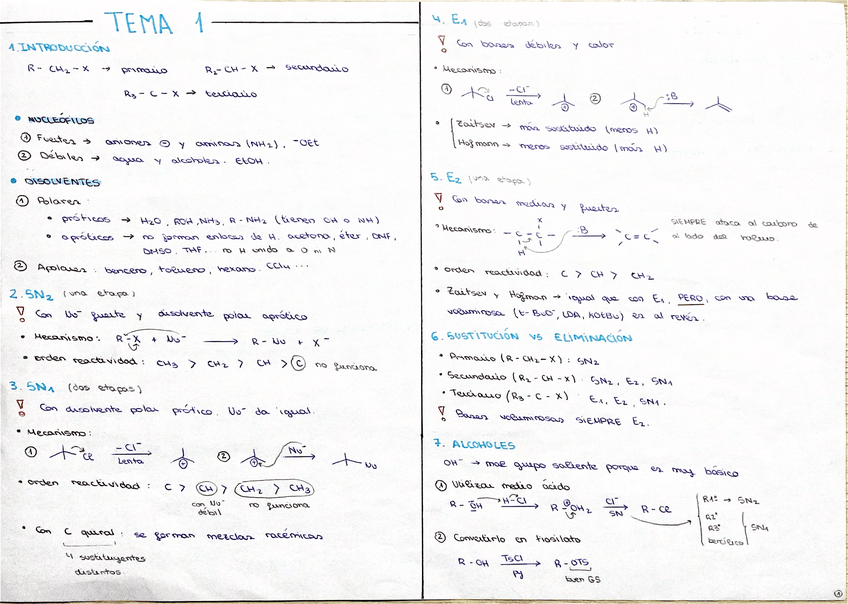 TEMA 1
1. INTRODUCCIÓN
R-CH2-X → primario R2-CH-X → secundario
R3-C-X → terciario
• NUCLEÓFILOS
① Fuertes → aniones ⊖ y aminas (NH2), ⁻OEt
② Débiles → agua y alcoholes. EtOH.
• DISOLVENTES
① Polares:
• próticos → H2O, ROH, NH3, R-NH2 (tienen OH o NH)
• apróticos → no forman enlaces de H. acetona, éter, DMF,
DMSO, THF... no H unido a O ni N
② Apolares: benceno, tolueno, hexano. CCl4 ...
2. SN2 (una etapa)
! Con Nu⁻ fuerte y disolvente polar aprótico
• Mecanismo: R-X + Nu⁻ → R-Nu + X⁻
• orden reactividad: CH3 > CH2 > CH > C no funciona
3. SN1 (dos etapas)
! Con disolvente polar prótico. Nu⁻ da igual.
• Mecanismo:
① Cl -Cl⁻ lenta ⊕ ② ⊕ Nu⁻ Nu
• orden reactividad: C > CH > CH2 > CH3
con Nu⁻ débil no funciona
• Con C quiral: se forman mezclas racémicas
4 sustituyentes
distintos.
4. E1 (dos etapas)
! Con bases débiles y calor
• Mecanismo:
① Cl -Cl⁻ lenta ⊕ ② ⊕ H :B
• Zaitsev → más sustituido (menos H)
Hofmann → menos sustituido (más H)
5. E2 (una etapa)
! Con bases medias y fuertes
• Mecanismo: -C-C- X H :B C=C SIEMPRE ataca al carbono de
al lado del haluro.
• orden reactividad: C > CH > CH2
• Zaitsev y Hofman → igual que con E1, PERO, con una base
voluminosa (t-BuO⁻, LDA, KOtBu) es al revés.
6. SUSTITUCIÓN VS ELIMINACIÓN
• Primario (R-CH2-X): SN2
• Secundario (R2-CH-X): SN2, E2, SN1
• Terciario (R3-C-X) E1, E2, SN1.
! Bases voluminosas SIEMPRE E2.
7. ALCOHOLES
OH⁻ → mal grupo saliente porque es muy básico
① Utilizar medio ácido
R-OH H-Cl R-OH2 ⊕ Cl⁻ SN R-Cl
R1º → SN2
R2º
R3º
bencílico
SN1
② Convertirlo en tosilato
R-OH TsCl py → R-OTS
buen GS
1